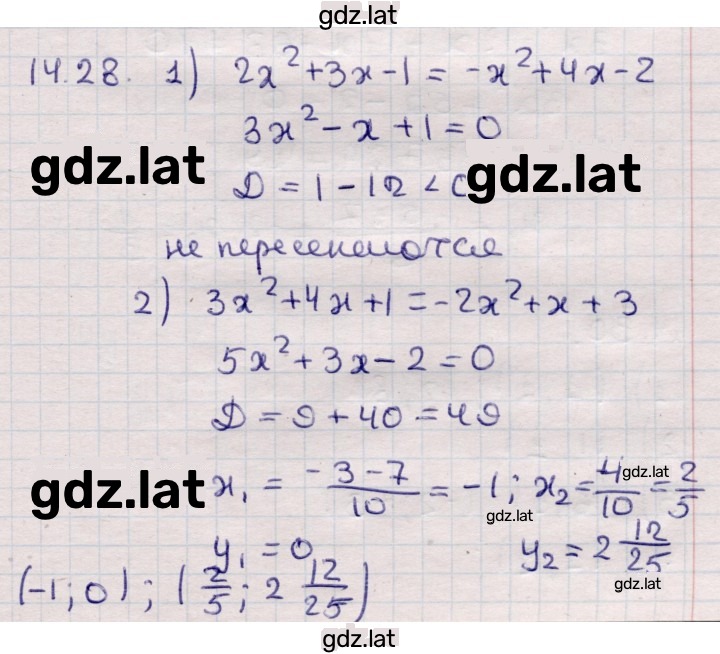 gdz.lat
14.28. 1) 2x²+3x-1 = -x²+4x-2
3x² - x + 1 = 0
gdz.lat
gdz.lat
D = 1 - 12 <
не пересекаются
2) 3x²+4x+1 = -2x²+x+3
5x²+3x-2 = 0
D = 9+40 = 49
gdz.lat
x₁ = (-3-7)/10 = -1; x₂ = 4/10 = 2/5
gdz.lat
gdz.lat
y₁ = 0 y₂ = 2 12/25
gdz.lat
(-1; 0); (2/5; 2 12/25)
gdz.lat